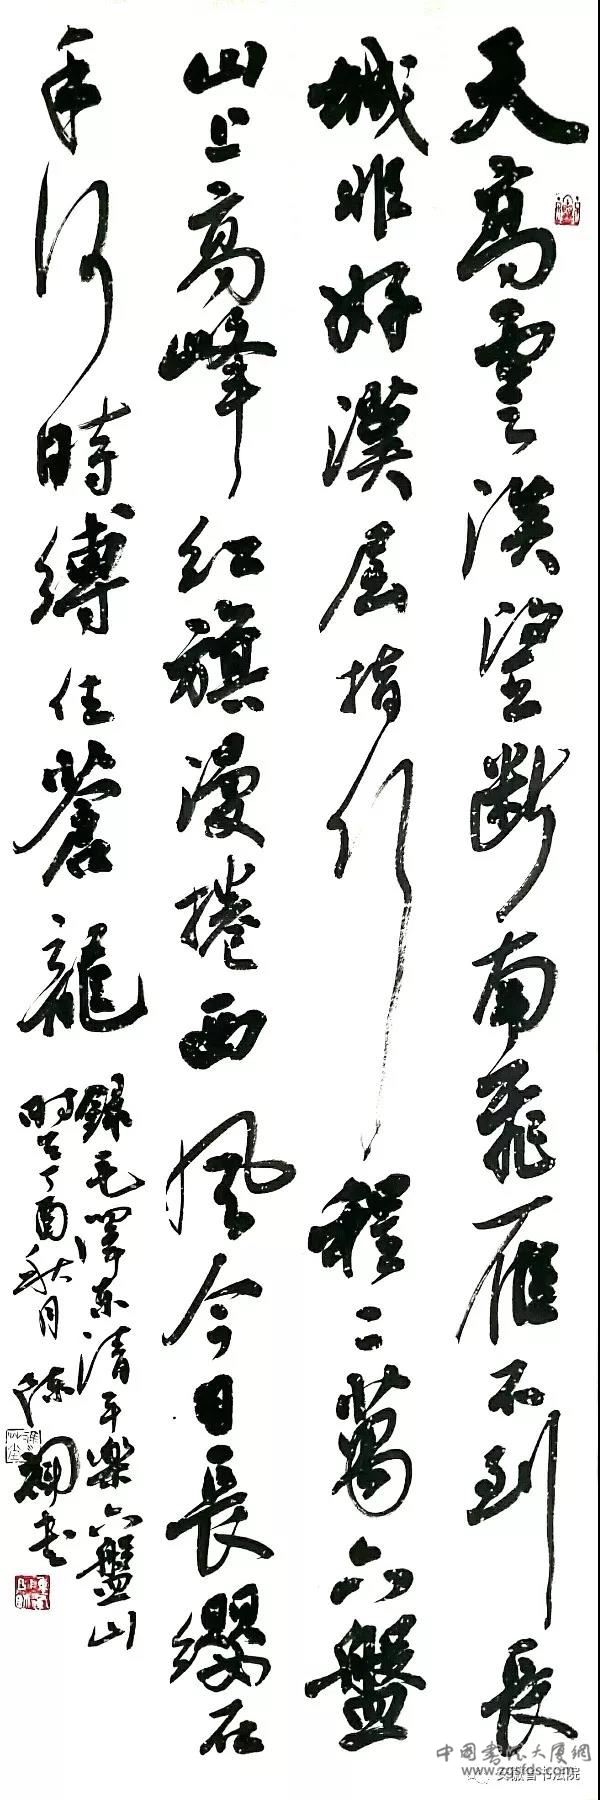 天高雲淡望斷南飛雁不到長
城非好漢屈指行程二萬六盤
山上高峰紅旗漫捲西風今日長纓在
手何時縛住蒼龍
錄毛澤東清平樂六盤山
時丁酉秋月 陳書
中國書法大厦網
www.zgsfds.com
书法院